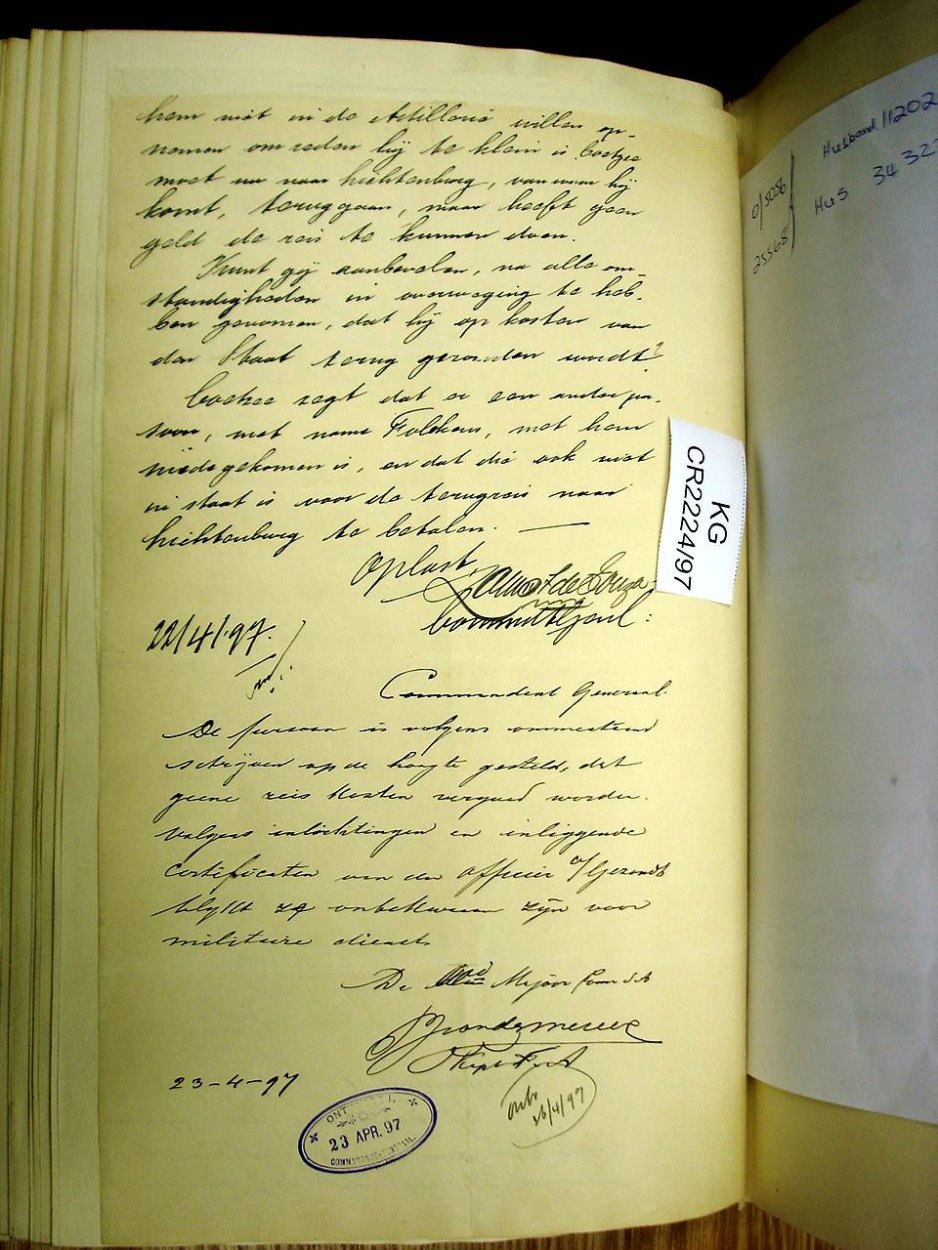 hem niet in de Artillerie willen op-
nemen om reden hij te klein is. Coetzee
moet nu naar Lichtenburg, van waar hij
komt, teruggaan, maar heeft geen
geld de reis te kunnen doen.
Kunt gij aanbevelen, na alle om-
standigheden in overweging te heb-
ben genomen, dat hij op kosten van
den Staat terug gezonden wordt?
Coetzee zegt dat er een ander per-
soon, met name, met hem
medegekomen is, en dat die ook niet
in staat is voor de terugreis naar
Lichtenburg te betalen.
Op last,
de Souza
22/4/97.
Commdant General.
De persoon is volgens
schrijven op de hoogte gesteld, dat
geene reis kosten vergoed worden.
Volgens inlichtingen en inliggende
certificaten van den Officier v/Gezondh
blykt ze onbekwaam zijn voor
militaire dienst.
De Majoor Comdt
23-4-97
23 APR. 97
26/4/97
KG
CR2224/97
Husband 11202
Hus 3432
0/5056
25568